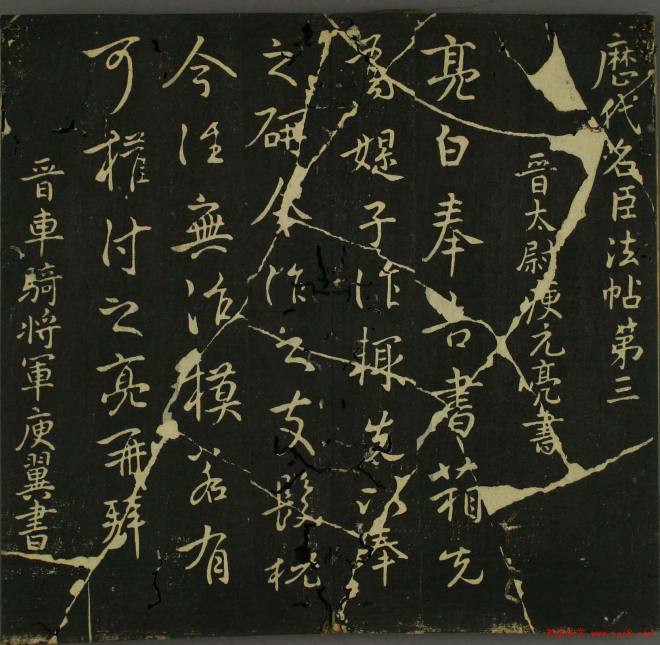 歷代名臣法帖第三
晉太尉庾元亮書
亮白奉告書箱先
爲媞子作櫃先以奉
之研今治之支髮枕
今往無治模若有
可權付之亮再拜
晉車騎將軍庾翼書
www.yac8.com